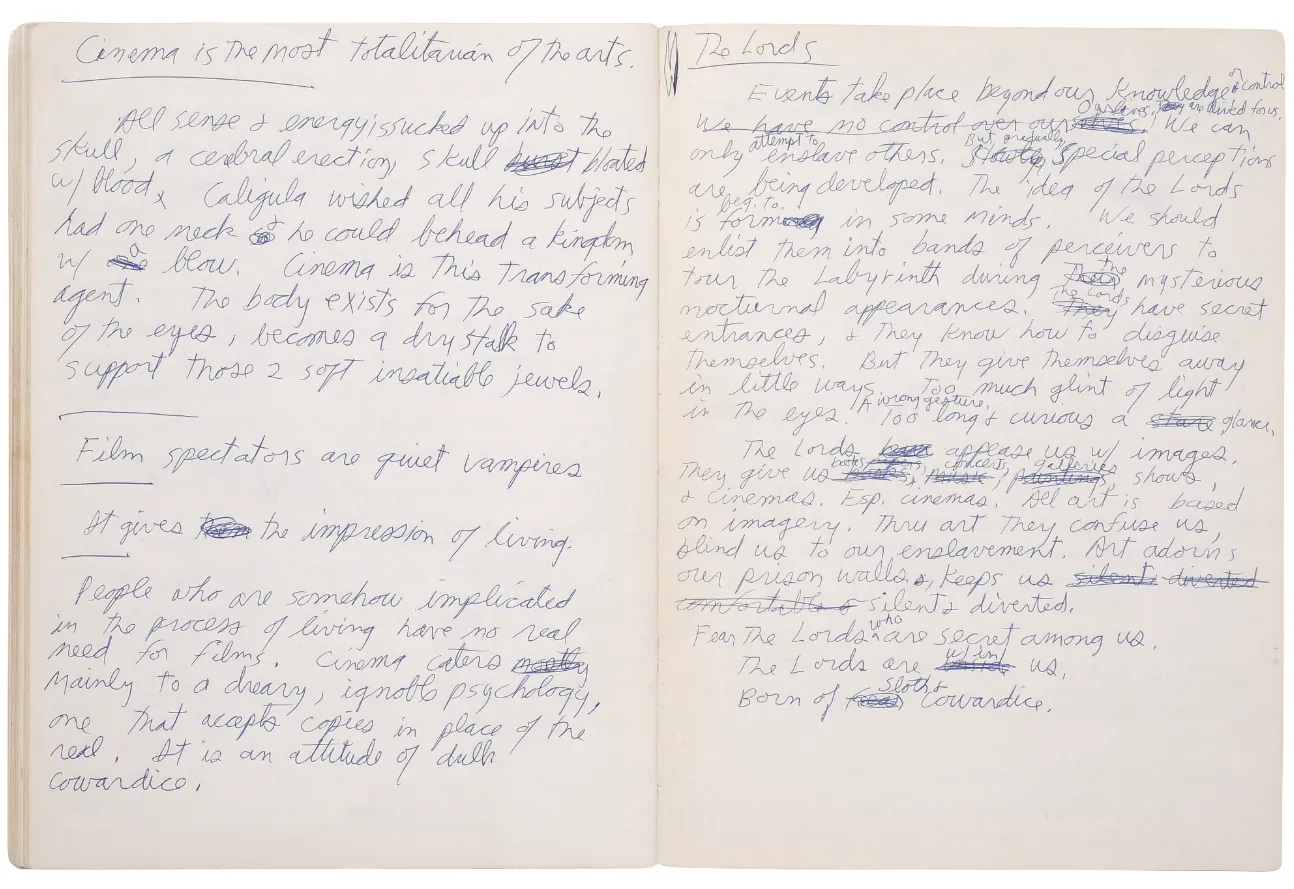 Cinema is the most totalitarian of the arts.
All sense & energy is sucked up into the
skull, a cerebral erection, skull bloated
w/ blood. Caligula wished all his subjects
had one neck so he could behead a kingdom
w/ a blow. Cinema is this transforming
agent. The body exists for the sake
of the eyes, becomes a dry stalk to
support those 2 soft insatiable jewels.
Film spectators are quiet vampires
It gives the impression of living.
People who are somehow implicated
in the process of living have no real
need for films. Cinema caters mostly
mainly to a dreary, ignoble psychology,
one that accepts copies in place of the
real. It is an attitude of dull
cowardice.
The Lords
Events take place beyond our knowledge or control
Our lives are lived for us.
We have no control over our We can
attempt to But gradually
only enslave others. Slowly, Special perceptions
are being developed. The idea of the Lords
beg. to
is form in some minds. We should
enlist them into bands of perceivers to
tour the Labyrinth during the mysterious
nocturnal appearances. The Lords They have secret
entrances, & They know how to disguise
themselves. But They give themselves away
in little ways. Too much glint of light
A wrong gesture.
in the eyes. Too long & curious a stare glance.
The Lords appease us w/ images.
books concerts galleries
They give us books, music, paintings, shows,
& cinemas. Esp. cinemas. All art is based
on imagery. Thru art They confuse us,
blind us to our enslavement. Art adorns
our prison walls, keeps us silent diverted
comfortable & silent & diverted.
Fear The Lords who are secret among us.
The Lords are w/in us.
Born of sloth & Cowardice.